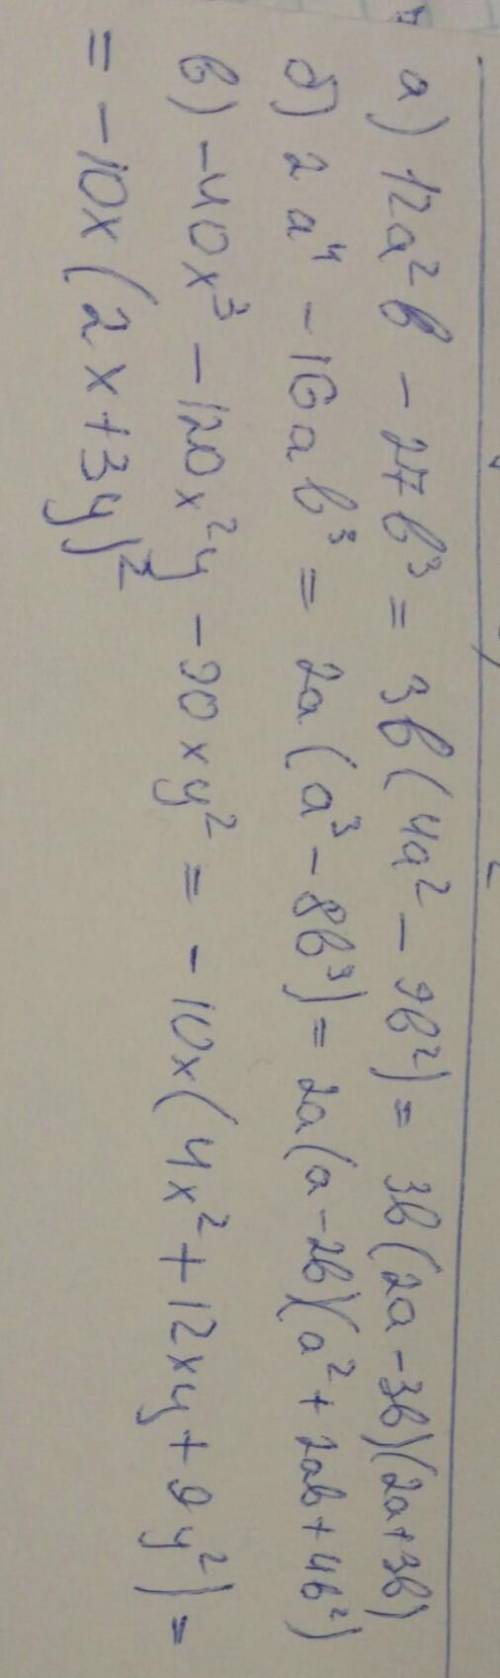 а) 12a²b - 27b³ = 3b(4a² - 9b²) = 3b(2a - 3b)(2a + 3b)
б) 2a⁴ - 16ab³ = 2a(a³ - 8b³) = 2a(a - 2b)(a² + 2ab + 4b²)
в) -40x³ - 120x²y - 90xy² = -10x(4x² + 12xy + 9y²) =
= -10x(2x + 3y)²